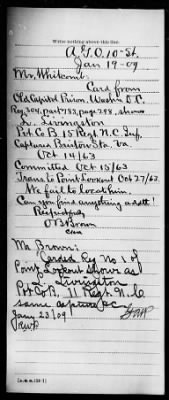 Write nothing above this line.
A.G.O. 10-St.
Jan 19-09
Mr. Whitcomb:
Card from
Old Capitol Prison, Washn D.C.
Reg 304, part 783, page 298, shows
Livingston
Pvt. Co B 15 Regt. N.C. Inf.
Captured Bristoe Sta. Va.
Oct 14/63
Committed Oct 15/63
Trans to Point Lookout Oct 27/63.
We fail to locate him.
Can you find anything on it?
Respectfully
O B Brown
Mr. Brown:
Carded Reg No 1 of
Point Lookout shows as
Livingston
Pvt Co B, 11 Regt. N.C.
same capture &c
Jany 23/09